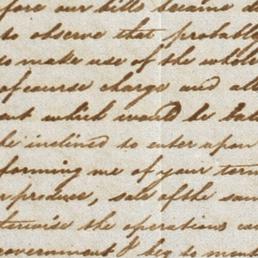 fore our bills became d
to observe that probably
to make use of the whole
of course charge and all
out which would be ta
be inclined to enter upon
forming me of your term
produce, sale of the sam
terwise the operations ca
government I beg to ment